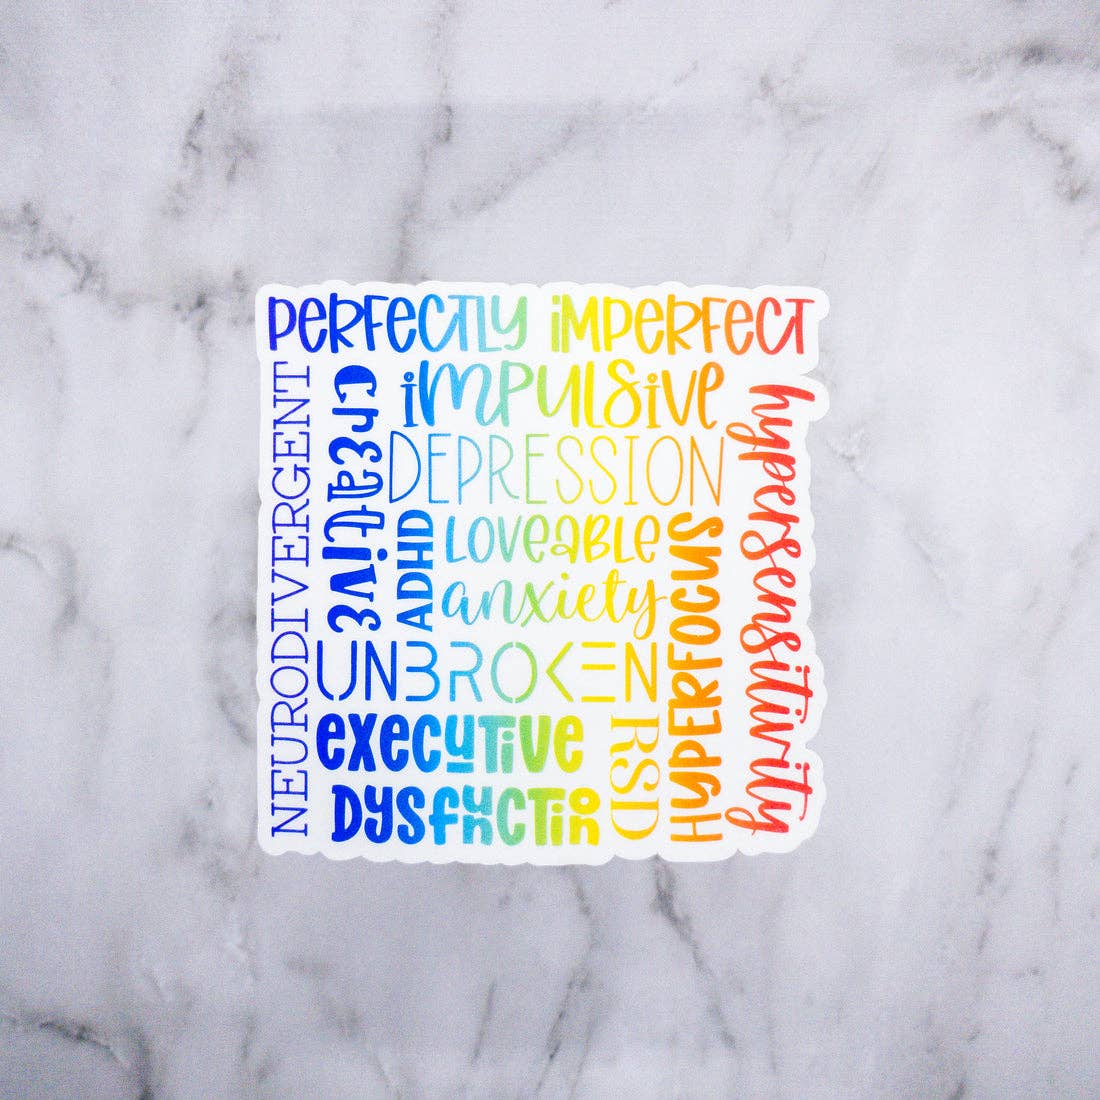 PERFECTLY iMPERFECT
NEURODIVERGENT
creative
iMPULSiVE
DEPRESSION
hypersensitivity
ADHD
LOVEABLE
anxiety
HYPERFOCUS
UNBROKEN
EXECUTiVE
RSD
DYSfunCTion